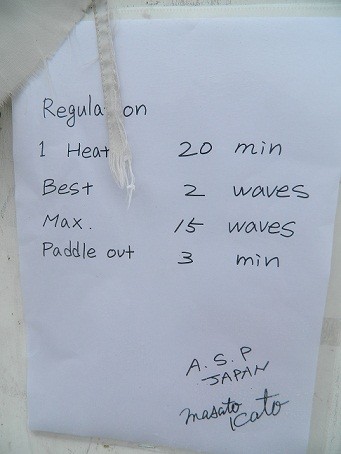 Regulation
1 Heat 20 min
Best 2 waves
Max. 15 waves
Paddle out 3 min
A.S.P
JAPAN
masato
Kato